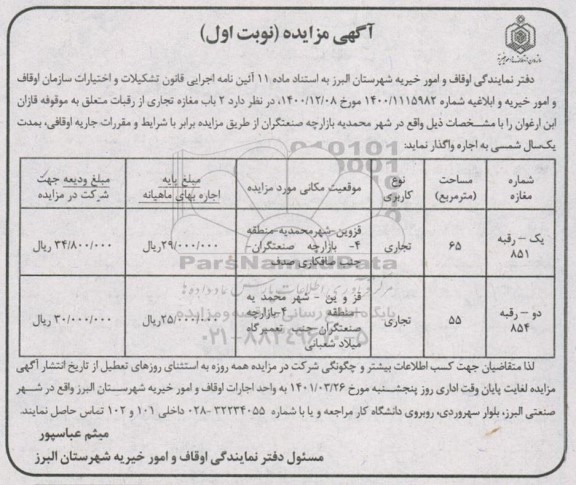 آگهی مزایده (نوبت اول)
دفتر نمایندگی اوقاف و امور خیریه شهرستان البرز به استناد ماده ۱۱ آئین نامه اجرایی قانون تشکیلات و اختیارات سازمان اوقاف
و امور خیریه و ابلاغیه شماره ۱۴۰۰/۱۱۱۵۹۸۲ مورخ ۱۴۰۰/۱۲/۰۸، در نظر دارد ۲ باب مغازه تجاری از رقبات متعلق به موقوفه قازان
ابن ارغوان را با مشخصات ذیل واقع در شهر محمدیه بازارچه صنعتگران از طریق مزایده برابر با شرایط و مقررات جاریه اوقافی، بمدت
یک‌سال شمسی به اجاره واگذار نماید:
شماره مغازه
مساحت (مترمربع)
نوع کاربری
موقعیت مکانی مورد مزایده
مبلغ پایه اجاره بهای ماهیانه
مبلغ ودیعه جهت شرکت در مزایده
یک – رقبه ۸۵۱
۶۵
تجاری
قزوین-شهرمحمدیه-منطقه
۴- بازارچه صنعتگران-
جنب صافکاری صدف
۲۹/۰۰۰/۰۰۰ریال
۳۴/۸۰۰/۰۰۰ ریال
دو – رقبه ۸۵۴
۵۵
تجاری
قزوین - شهر محمدیه
-منطقه ۴-بازارچه
صنعتگران-جنب تعمیرگاه
میلاد شعبانی
۲۵/۰۰۰/۰۰۰ریال
۳۰/۰۰۰/۰۰۰ ریال
ParsNamadData
۰۲۱-۸۸۳۴۹۶
لذا متقاضیان جهت کسب اطلاعات بیشتر و چگونگی شرکت در مزایده همه روزه به استثنای روزهای تعطیل از تاریخ انتشار آگهی
مزایده لغایت پایان وقت اداری روز پنجشنبه مورخ ۱۴۰۱/۰۳/۲۶ به واحد اجارات اوقاف و امور خیریه شهرستان البرز واقع در شهر
صنعتی البرز، بلوار سهروردی، روبروی دانشگاه کار مراجعه و یا با شماره ۳۲۲۳۴۰۵۵-۰۲۸ داخلی ۱۰۱ و ۱۰۲ تماس حاصل نمایند.
میثم عباسپور
مسئول دفتر نمایندگی اوقاف و امور خیریه شهرستان البرز